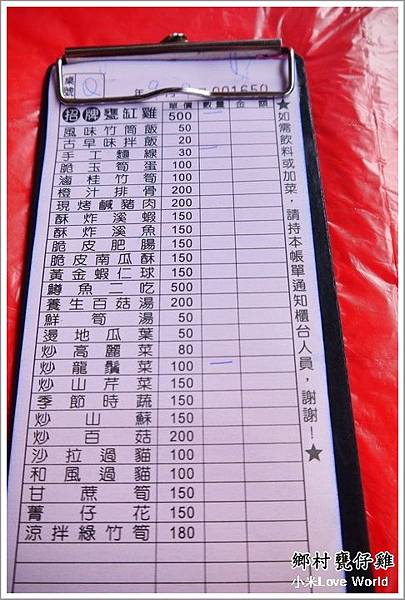 桌號
年 月 日 001650
招牌甕缸雞 單價 數量 金額
500
風味竹筒飯 50
古早味拌飯 20
手工麵線 30
脆玉筍蛋 100
滷桂竹筍 100
橙汁排骨 200
現烤鹹豬肉 200
酥炸溪蝦 150
酥炸溪魚 150
脆皮肥腸 150
脆皮南瓜酥 150
黃金蝦仁球 150
鱒魚二吃 500
養生百菇湯 200
鮮筍湯 50
燙地瓜葉 50
炒高麗菜 80
炒龍鬚菜 100
炒山芹菜 150
季節時蔬 150
炒山蘇 150
炒百菇 200
沙拉過貓 100
和風過貓 100
甘蔗筍 150
菁仔花 150
涼拌綠竹筍 180
★如需飲料或加菜，請持本帳單通知櫃台人員，謝謝！★
鄉村甕仔雞
小米Love World